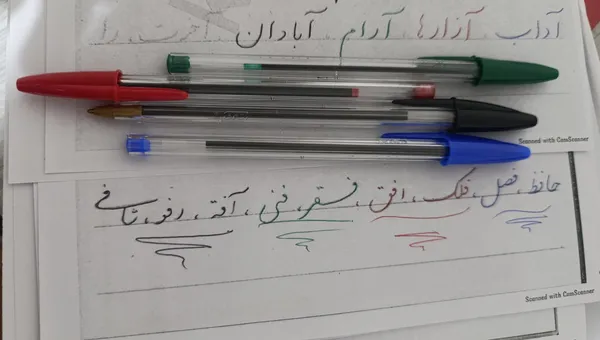 آداب، آزارها، آرام، آبادان، آخرت، را
Scanned with CamScanner
حافظ، فصل، فلک، افق، فسقر، فنی، آفة، رفو، تافی
Scanned with CamScanner